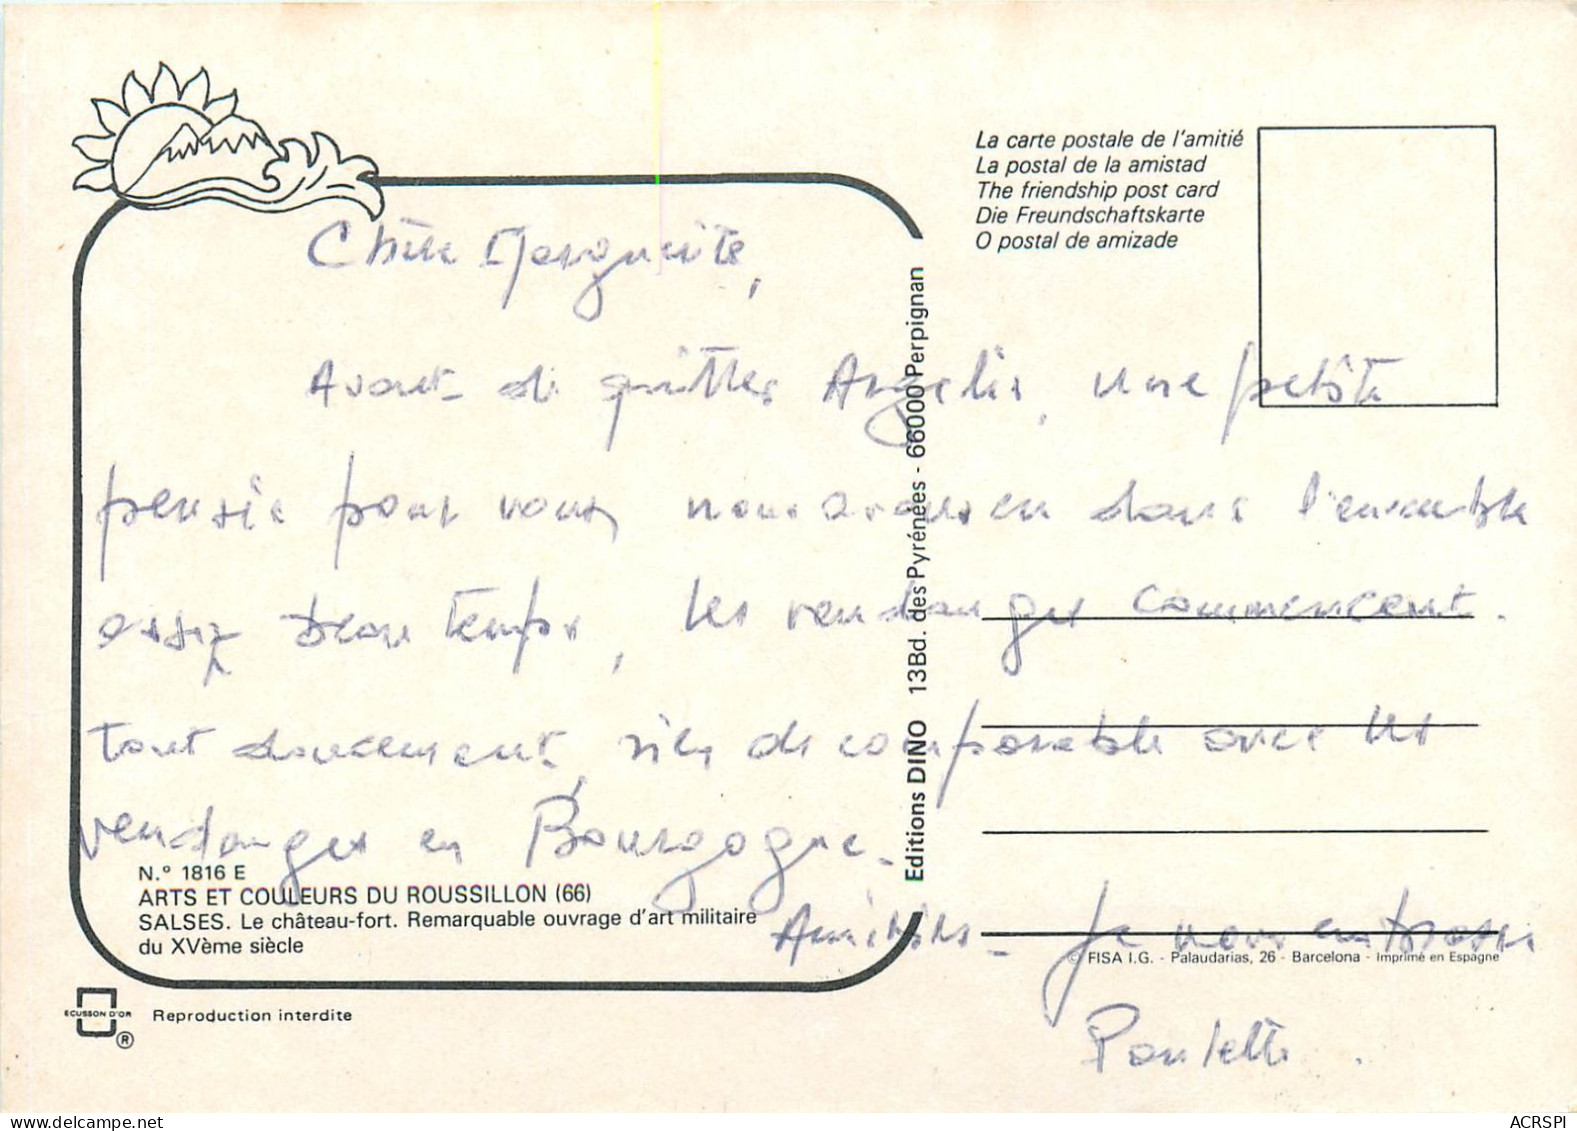 La carte postale de l'amitié
La postal de la amistad
The friendship post card
Die Freundschaftskarte
O postal de amizade
Chère Marguerite,
Avant de quitter Argelès, une petite
pensée pour vous, nous avons eu dans l'ensemble
assez beau temps, les vendanges commencent.
tout doucement, rien de comparable avec les
vendanges en Bourgogne.
Amitiés - Je vous embrasse
Paulette.
Editions DINO 13Bd. des Pyrénées - 66000 Perpignan
N.º 1816 E
ARTS ET COULEURS DU ROUSSILLON (66)
SALSES. Le château-fort. Remarquable ouvrage d'art militaire
du XVème siècle
© FISA I.G. - Palaudarias, 26 - Barcelona - Imprimé en Espagne
ECUSSON D'OR
®
Reproduction interdite
ACRSPI